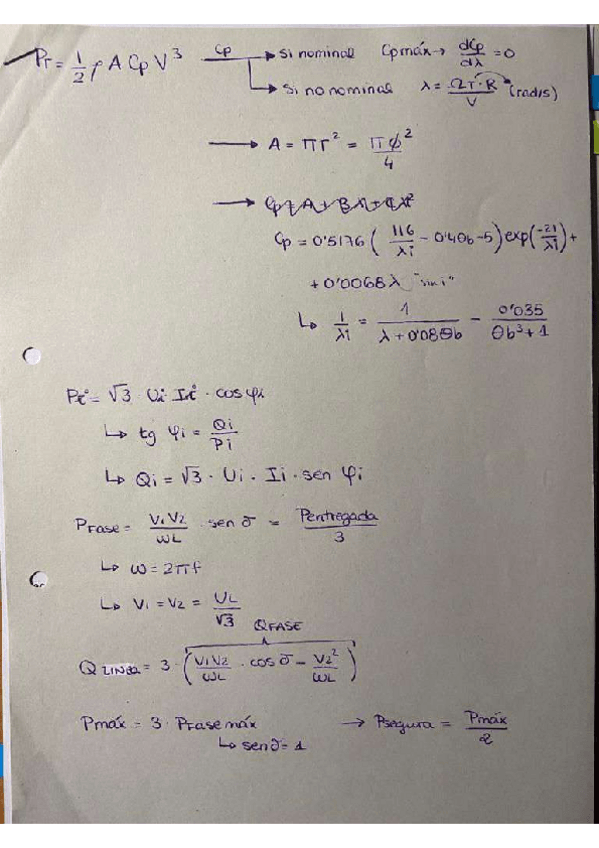 Pr = 1/2 ρ A Cp V³ —Cp→ Si nominal Cpmáx → dCp/dλ = 0
↳ Si no nominal λ = ΩT·R/V (rad/s)
→ A = πr² = πφ²/4
→ Cp = A + Bλ + Cλ²
Cp = 0'5176 ( 116/λi − 0'4θb − 5 ) exp( −21/λi ) +
+ 0'0068 λ "sin i"
↳ 1/λi = 1/(λ + 0'08θb) − 0'035/(θb³ + 1)
Pi = √3 · Ui · Ii · cos φi
↳ tg φi = Qi/Pi
↳ Qi = √3 · Ui · Ii · sen φi
PFASE = V1V2/ωL · sen δ = Pentregada/3
↳ ω = 2πf
↳ V1 = V2 = UL/√3
QFASE
QLINEA = 3 · ( V1V2/ωL · cos δ − V2²/ωL )
Pmáx = 3 · PFase máx → Psegura = Pmáx/2
↳ sen δ = 1